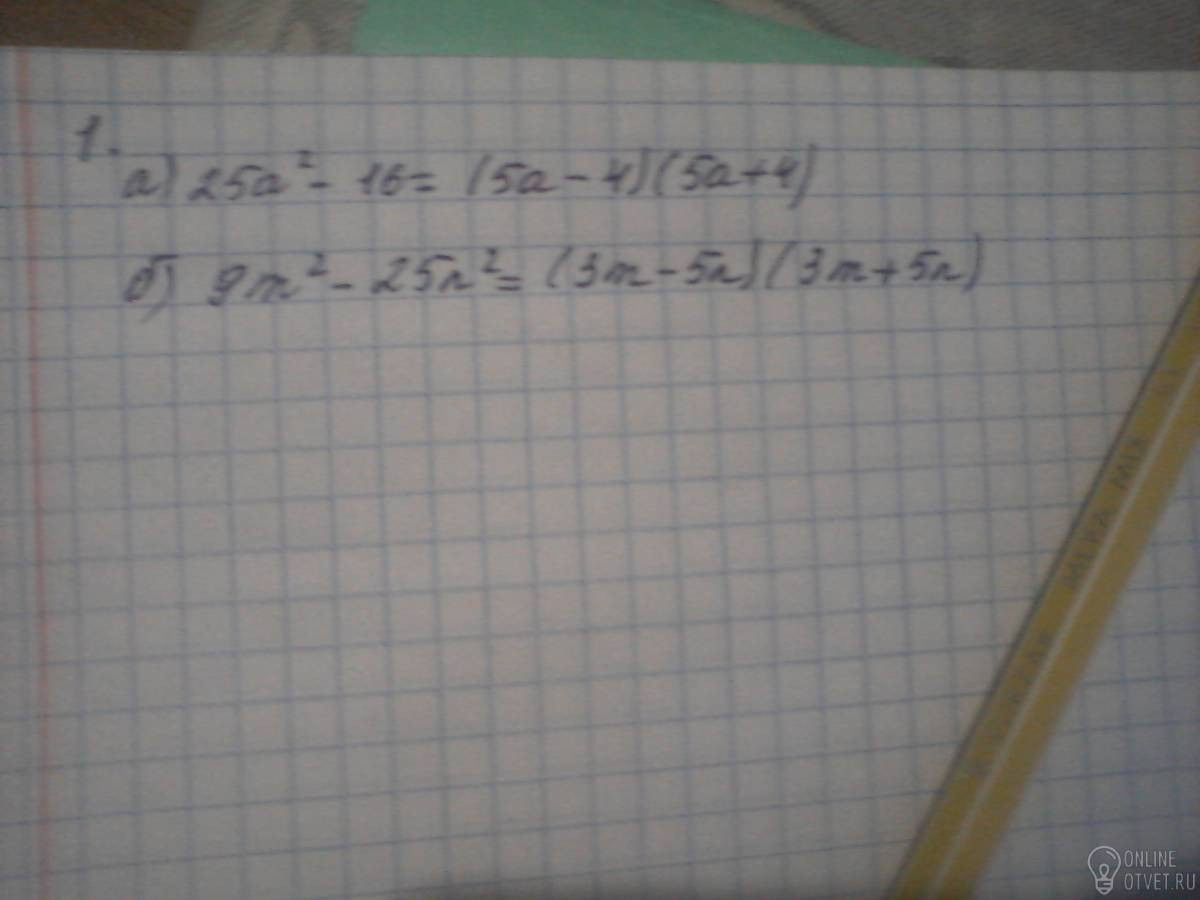 1.
а) 25a² - 16 = (5a - 4)(5a + 4)
б) 9m² - 25n² = (3m - 5n)(3m + 5n)
ONLINE
OTVET.RU